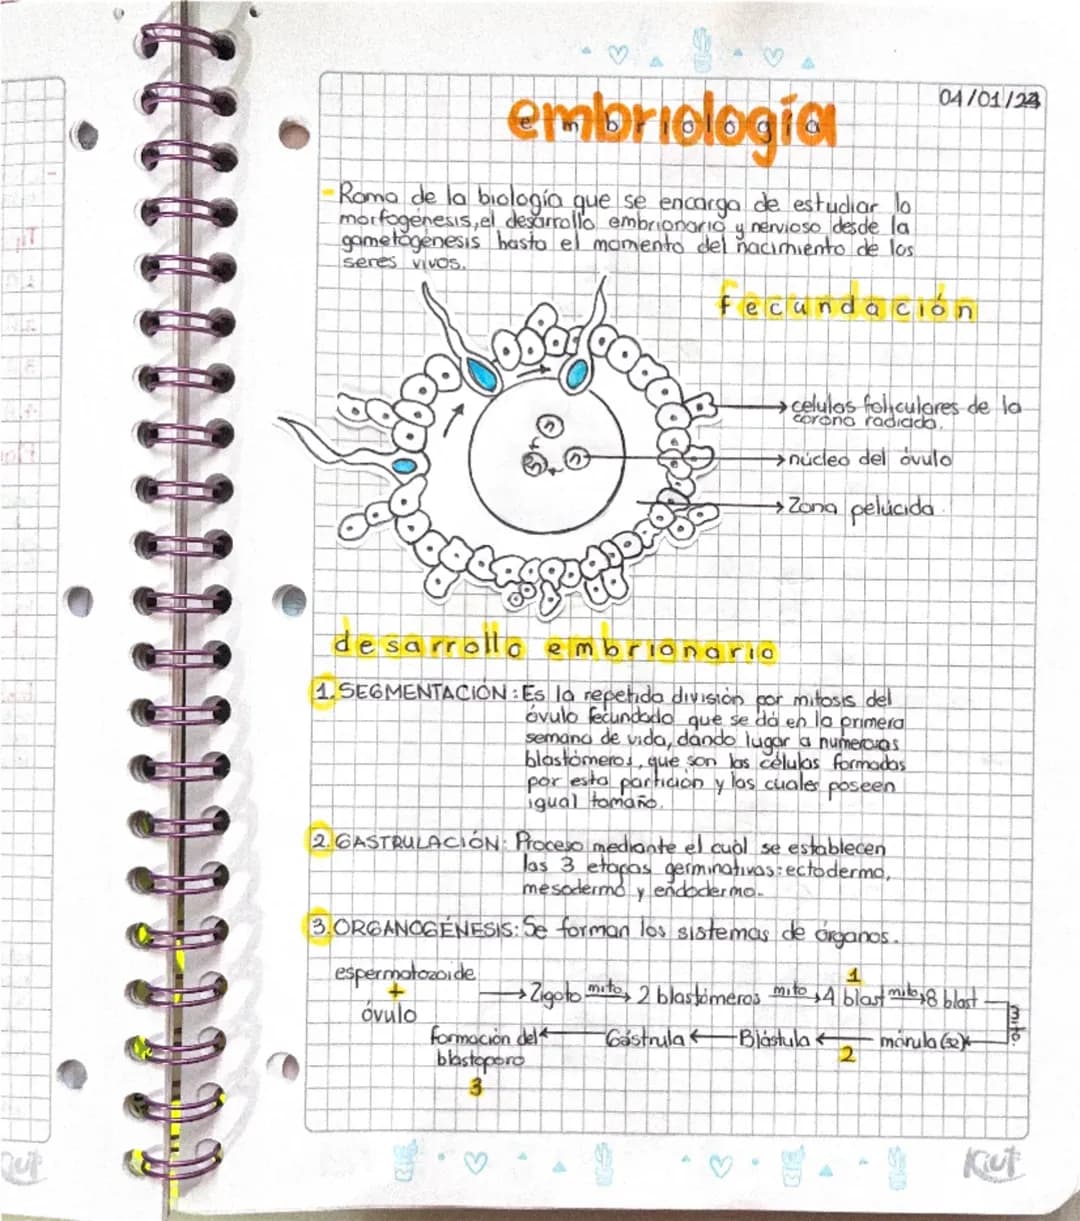 04/01/23
embriología
- Rama de la biología que se encarga de estudiar la
morfogénesis, el desarrollo embrionario y nervioso desde la
gametogénesis hasta el momento del nacimiento de los
seres vivos.
fecundación
→ celulas foliculares de la
corona radiada.
→ núcleo del óvulo
→ Zona pelúcida
n
n
2n
desarrollo embrionario
1. SEGMENTACIÓN: Es la repetida división por mitosis del
óvulo fecundado que se dá en la primera
semana de vida, dando lugar a numerosas
blastómeros, que son las células formadas
por esta partición y las cuales poseen
igual tamaño.
2. GASTRULACIÓN: Proceso mediante el cual se establecen
las 3 etapas germinativas: ectodermo,
mesodermo y endodermo.
3. ORGANOGÉNESIS: Se forman los sistemas de órganos.
espermatozoide
+
óvulo
→ Zigoto mito→ 2 blastómeros mito→ 4 blast mito→ 8 blast
1
mito
mórula (32) ← Blástula ← Gástrula ← formación del
blastoporo
2
3
Kiut